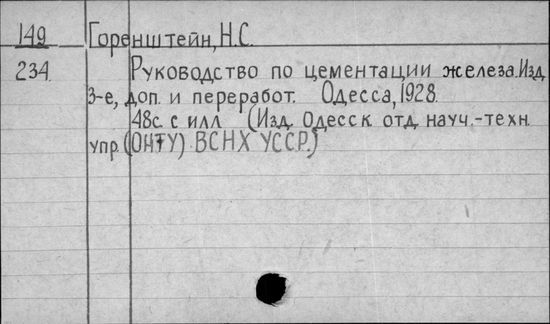 149 Горенштейн, Н.С.
234. Руководство по цементации железа. Изд
3-е, доп. и переработ. Одесса, 1928.
48с. с илл (Изд. Одесск отд науч.-техн.
упр. (ОНТУ) ВСНХ УССР.)